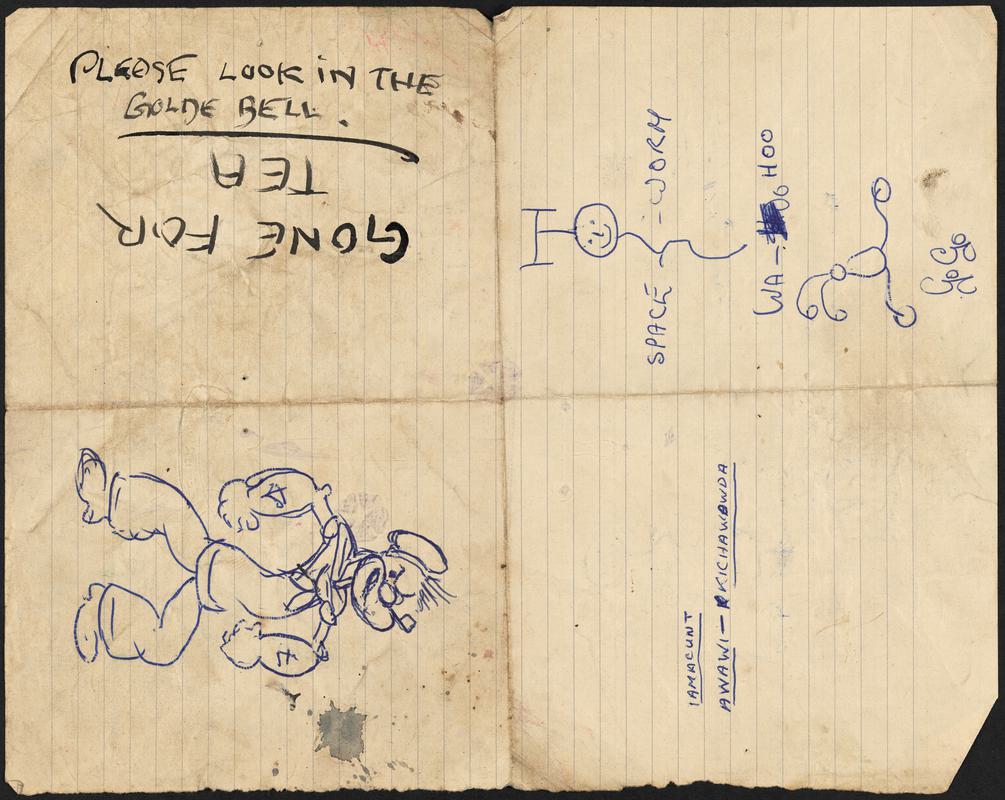 PLEASE LOOK IN THE
GOLDE BELL.
GONE FOR
TEA
SPACE-WORM
WA-OGHOO
GoGo
IAMACUNT
AWAWI-KICHAWAWDA